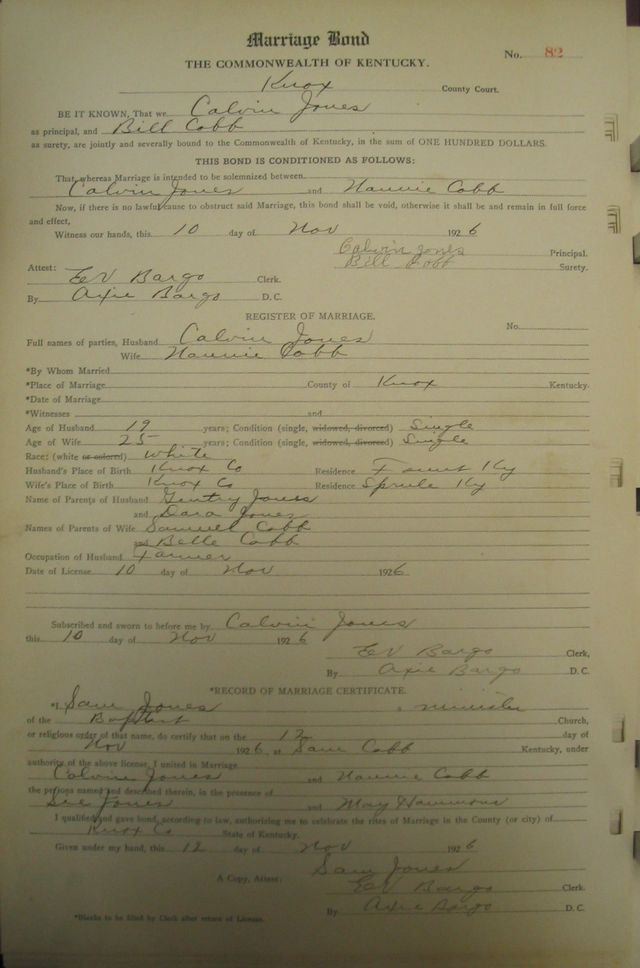 Marriage Bond
No. 82
THE COMMONWEALTH OF KENTUCKY.
Knox County Court.
BE IT KNOWN, That we Calvin Jones
as principal, and Bill Cobb
as surety, are jointly and severally bound to the Commonwealth of Kentucky, in the sum of ONE HUNDRED DOLLARS.
THIS BOND IS CONDITIONED AS FOLLOWS:
That, whereas Marriage is intended to be solemnized between
Calvin Jones and Nannie Cobb
Now, if there is no lawful cause to obstruct said Marriage, this bond shall be void, otherwise it shall be and remain in full force
and effect,
Witness our hands, this 10 day of Nov 1926
Calvin Jones Principal.
Bill Cobb Surety.
Attest:
E V Bargo Clerk.
By Axie Bargo D. C.
REGISTER OF MARRIAGE.
No.
Full names of parties, Husband Calvin Jones
Wife Nannie Cobb
*By Whom Married
*Place of Marriage County of Knox Kentucky.
*Date of Marriage
*Witnesses and
Age of Husband 19 years; Condition (single, widowed, divorced) Single
Age of Wife 25 years; Condition (single, widowed, divorced) Single
Race: (white or colored) White
Husband's Place of Birth Knox Co Residence Ky
Wife's Place of Birth Knox Co Residence Sprule Ky
Name of Parents of Husband Gentry Jones
and Dora Jones
Names of Parents of Wife Samuel Cobb
and Belle Cobb
Occupation of Husband Farmer
Date of License 10 day of Nov 1926
Subscribed and sworn to before me by Calvin Jones
this 10 day of Nov 1926
E V Bargo Clerk,
By Axie Bargo D. C.
*RECORD OF MARRIAGE CERTIFICATE.
*I, Sam Jones a minister
of the Baptist Church,
or religious order of that name, do certify that on the 12 day of
Nov 1926, at Sam Cobb Kentucky, under
authority of the above license, I united in Marriage
Calvin Jones and Nannie Cobb
the persons named and described therein, in the presence of
Jones and May Hammons
I qualified and gave bond, according to law, authorizing me to celebrate the rites of Marriage in the County (or city) of
Knox Co State of Kentucky.
Given under my hand, this 12 day of Nov 1926
Sam Jones
A Copy, Attest: E V Bargo Clerk.
By Axie Bargo D. C.
*Blanks to be filled by Clerk after return of License.